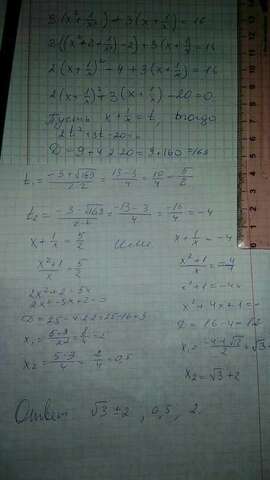 2(x² + 1/x²) + 3(x + 1/x) = 16
2((x² + 2 + 1/x²) - 2) + 3(x + 1/x) = 16
2(x + 1/x)² - 4 + 3(x + 1/x) = 16
2(x + 1/x)² + 3(x + 1/x) - 20 = 0
Пусть x + 1/x = t, тогда
2t² + 3t - 20 = 0
D = 9 + 4·2·20 = 9 + 160 = 169
t₁ = (-3 + √169)/(2·2) = (13 - 3)/4 = 10/4 = 5/2
t₂ = (-3 - √169)/(2·2) = (-13 - 3)/4 = -16/4 = -4
x + 1/x = 5/2 или x + 1/x = -4
(x² + 1)/x = 5/2 (x² + 1)/x = -4
2x² + 2 = 5x x² + 1 = -4x
2x² - 5x + 2 = 0 x² + 4x + 1 =
D = 25 - 4·2·2 = 25 - 16 = 9 D = 16 - 4 = 12
x₁ = = 2 x₁ =
x₂ = (5 - 3)/4 = 2/4 = 0,5 x₂ = √3 + 2
Ответ √3 ± 2, 0,5, 2